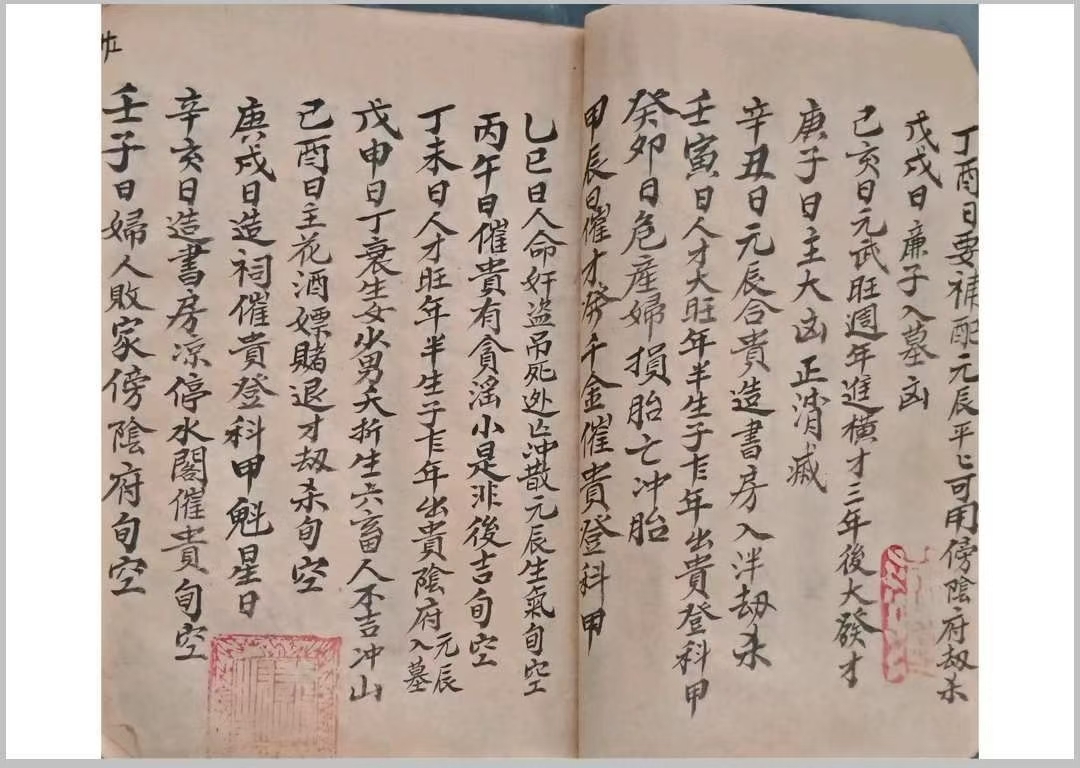 丁酉日要補配元辰平〻可用傍陰府劫杀
戊戌日廉子入墓凶
己亥日元武旺週年進橫才三年後大發才
庚子日主大凶正消滅
辛丑日元辰合貴造書房入泮劫杀
壬寅日人才大旺年半生子乍年出貴登科甲
癸卯日危産婦損胎亡冲胎
甲辰日催才發千金催貴登科甲
乙巳日人命奸盗吊死外亡冲散元辰生氣旬空
丙午日催貴有貪滛小是非後吉旬空
丁未日人才旺年半生子乍年出貴陰府元辰入墓
戊申日丁衰生女少男夭折生六畜人不吉冲山
己酉日主花酒嫖賭退才劫杀旬空
庚戌日造祠催貴登科甲魁星日
辛亥日造書房凉停水閣催貴旬空
壬子日婦人敗家傍陰府旬空